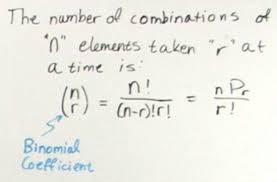 The number of combinations of
"n" elements taken "r" at
a time is:
(n r) = n! / (n-r)!r! = nPr / r!
Binomial
Coefficient